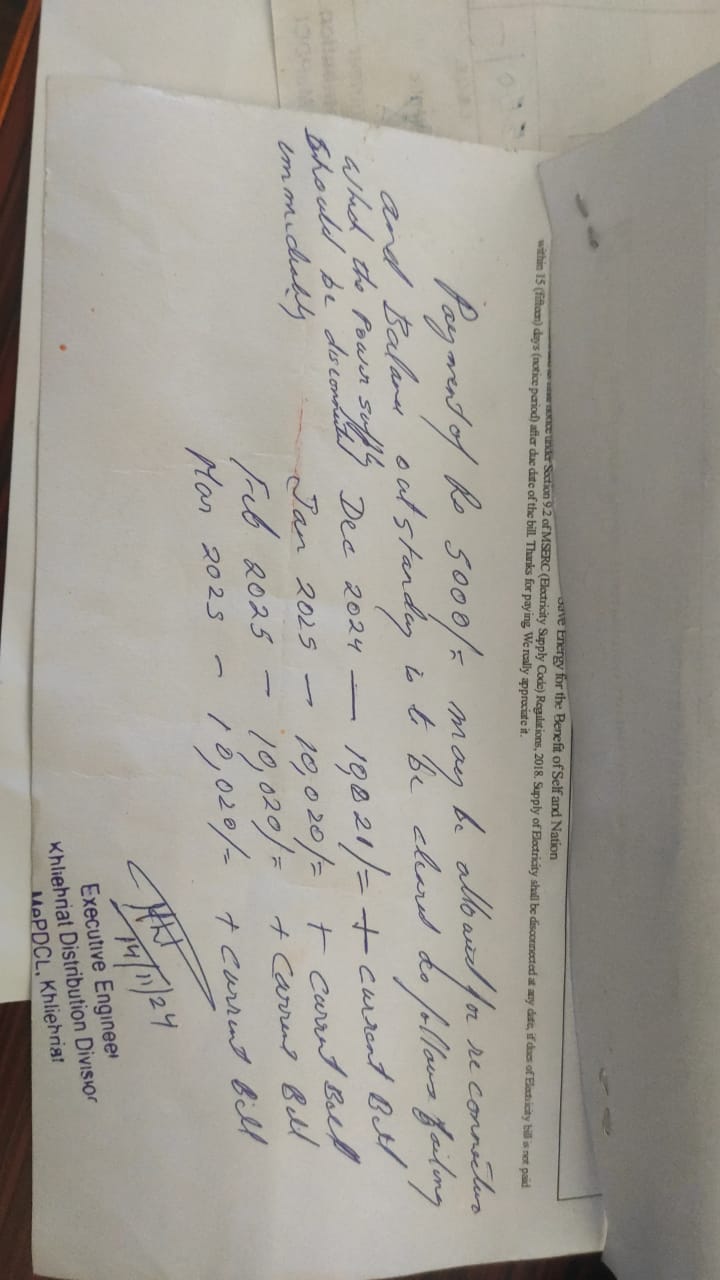 Save Energy for the Benefit of Self and Nation
notice under Section 9.2 of MSERC (Electricity Supply Code) Regulations, 2018. Supply of Electricity shall be disconnected at any date, if dues of Electricity bill is not paid
within 15 (fifteen) days (notice period) after due date of the bill. Thanks for paying. We really appreciate it.
Payment of Rs 5000/= may be allowed for reconnection
and Balance outstanding is to be cleared as follows failing
which the Power supply Dec 2024 — 10,021/= + current Bill
should be disconnected Jan 2025 — 10,020/= + current Bill
immediately Feb 2025 — 10,020/= + Current Bill
Mar 2025 — 10,020/= + current Bill
14/11/24
Executive Engineer
Khliehriat Distribution Division
MePDCL, Khliehriat